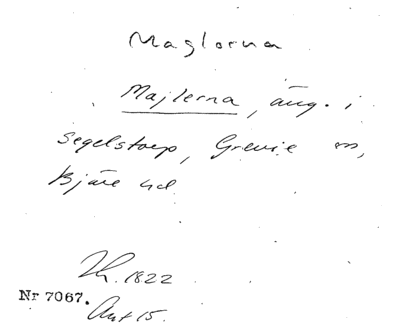 Maglorna
Majlerna, äng. i
Segelstorp, Grevie sn,
Bjäre hd
1822
Nr 7067.
Akt 15.